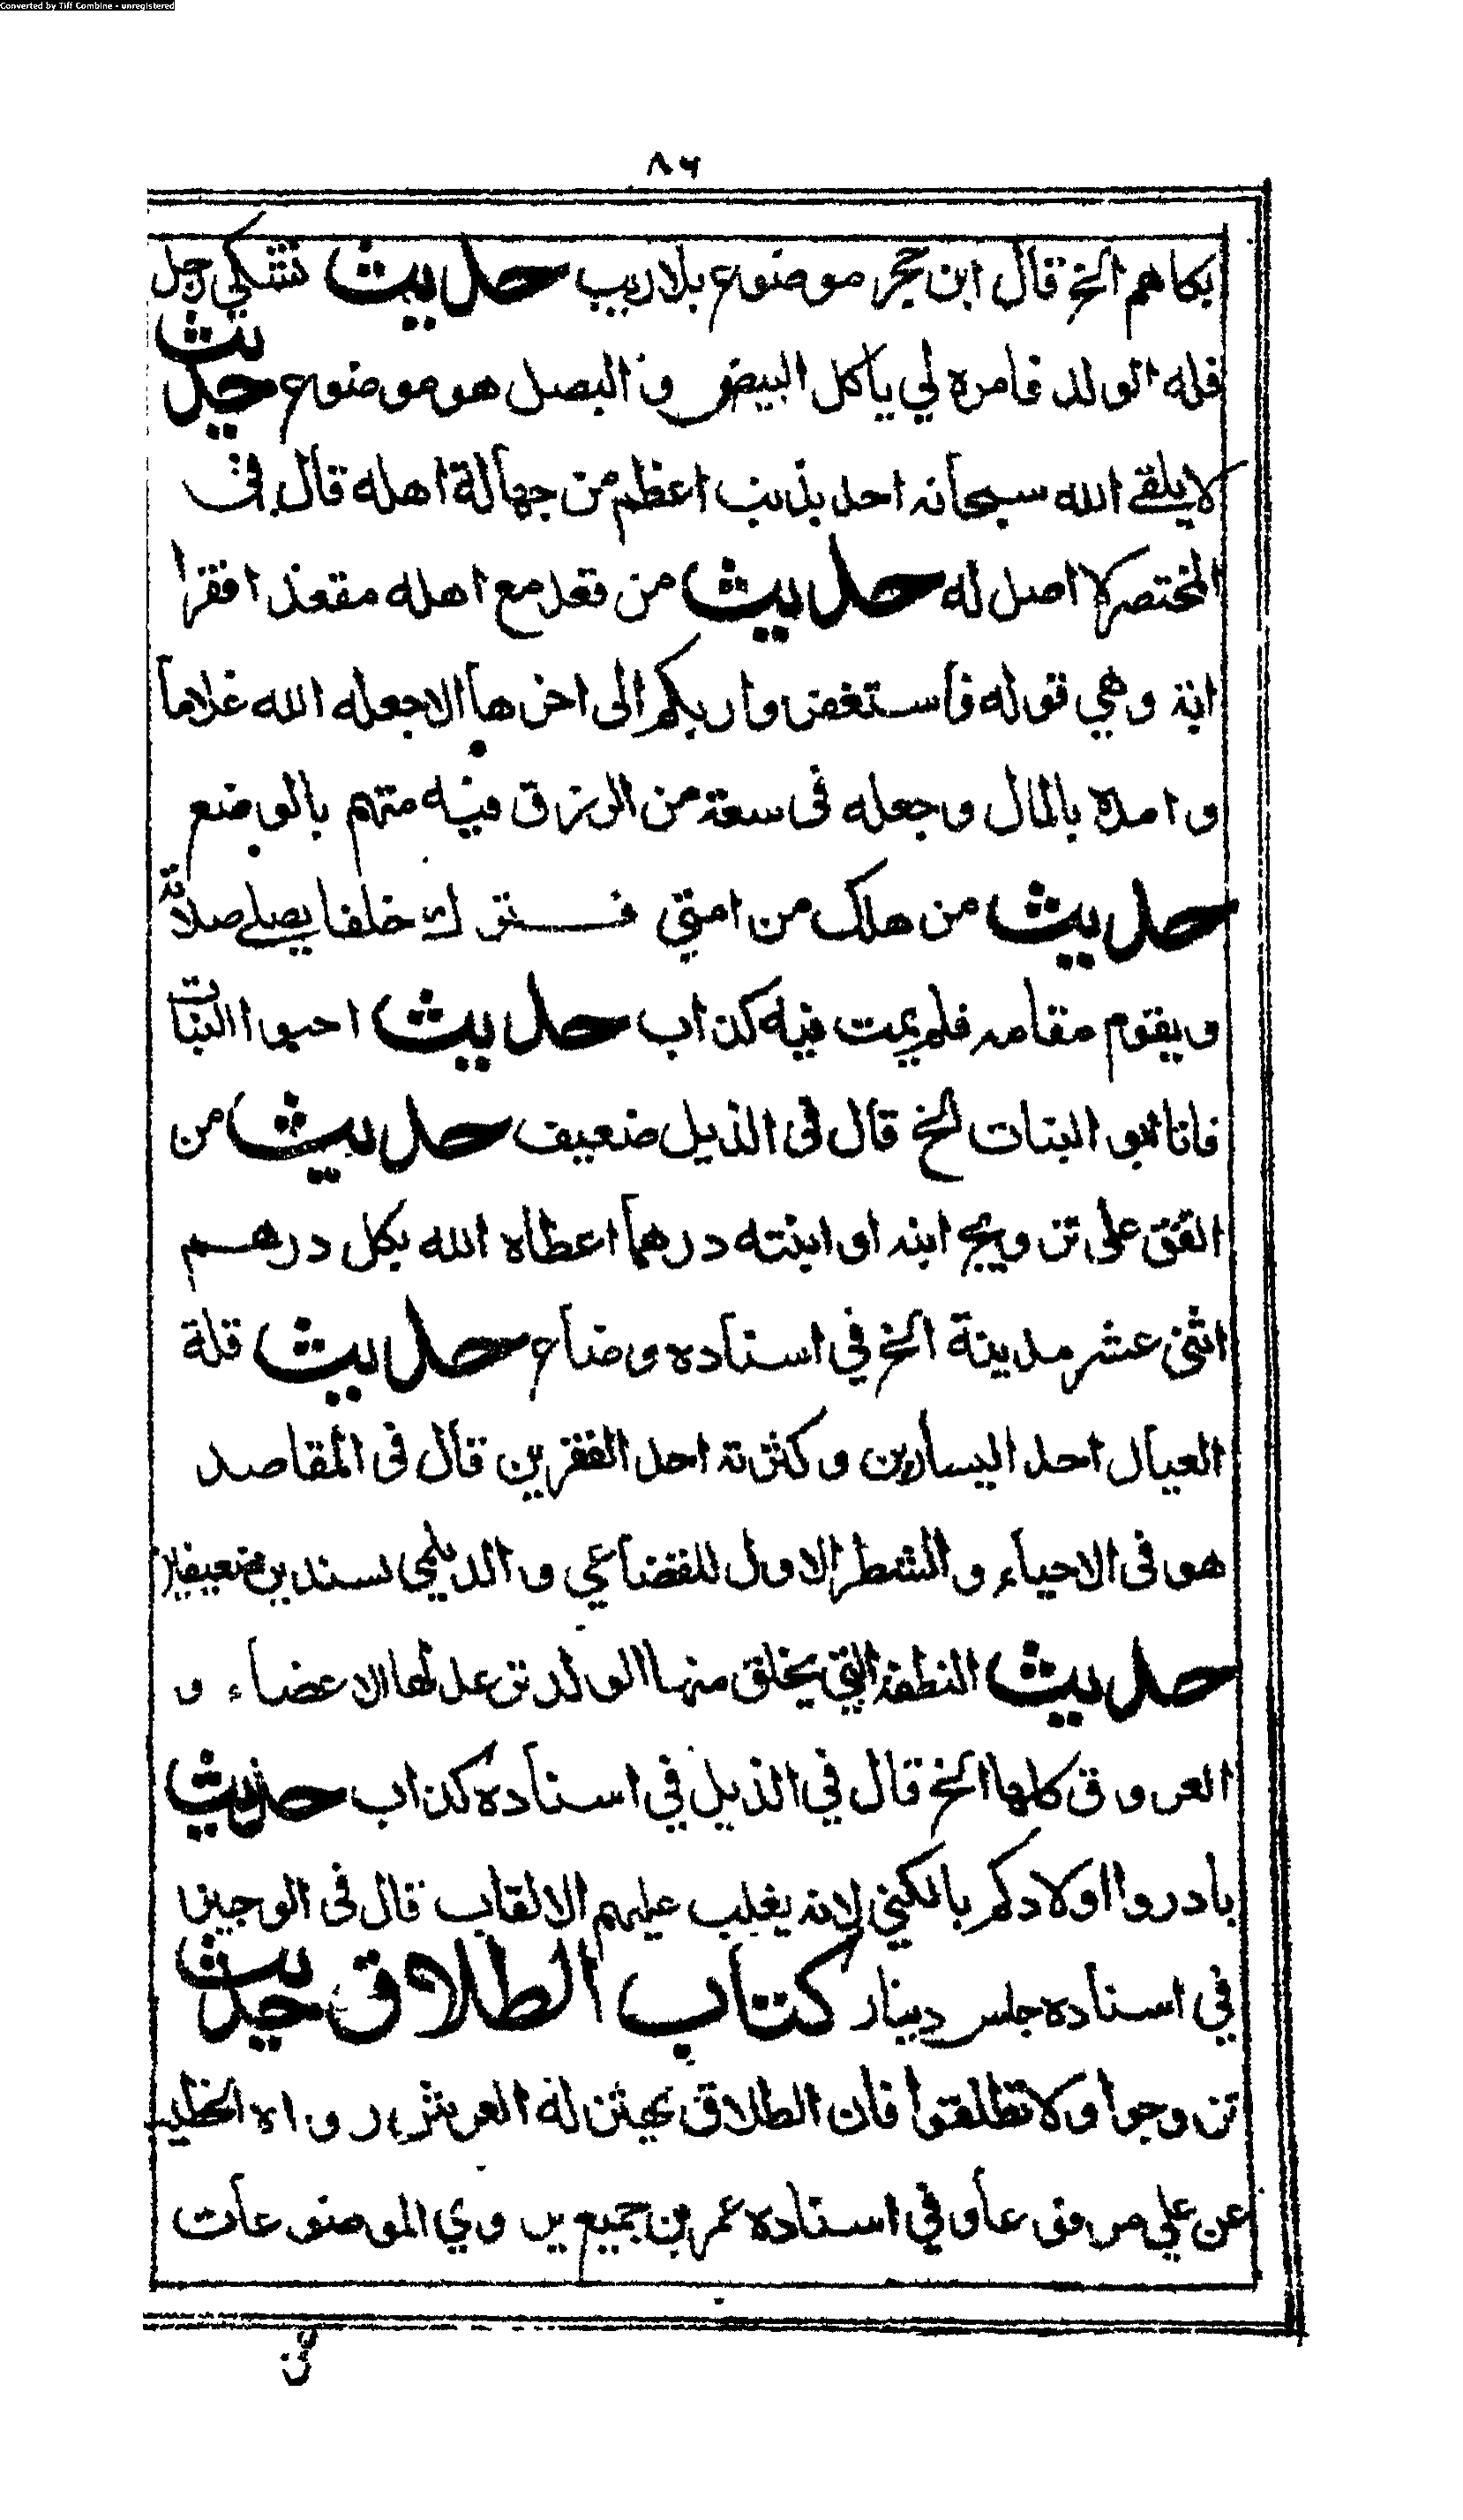 Converted by Tiff Combine - unregistered
٨٦
بكاهم الخ قال ابن حجر موضوع بلا ريب حديث تشكي رجل
قله الولد فامره لي ياكل البيض و البصل هو موضوع حديث
لا يلقى الله سبحانه احد بذنب اعظم من جهالة اهله قال في
المختصر لا اصل له حديث من قعد مع اهله مقعد افقرا
اية وهي قوله فاستغفروا ربكم الى اخرها الا جعله الله غلاما
و امده بالمال وجعله في سعة من الرزق فيه متهم بالوضع
حديث من هلك من امتي فترك خلفا يصلي صلاته
ويقوم مقامه فلم يمت فيه كذاب حديث احبوا البنات
فانا ابو البنات الخ قال في الذيل ضعيف حديث من
انفق على تزويج ابنه او ابنته درهما اعطاه الله بكل درهم
اثنى عشر مدينة الخ في اسناده وضاع حديث قلة
العيال احد اليسارين وكثرته احد الفقرين قال في المقاصد
هو في الاحياء والشطر الاول للقضاعي والديلمي بسندين ضعيفين
حديث النطفة التي يخلق منها الولد ترعد لها الاعضاء و
العروق كلها الخ قال في الذيل في اسناده كذاب حديث
بادروا اولادكم بالكنى لانه يغلب عليهم الالقاب قال في الوجيز
في اسناده جلس دينار كتاب الطلاق حديث
تزوجوا ولا تطلقوا فان الطلاق يهتز له العرش رواه الخطيب
عن علي مرفوعا وفي اسناده عمر بن جميع يروي الموضوعات
عن